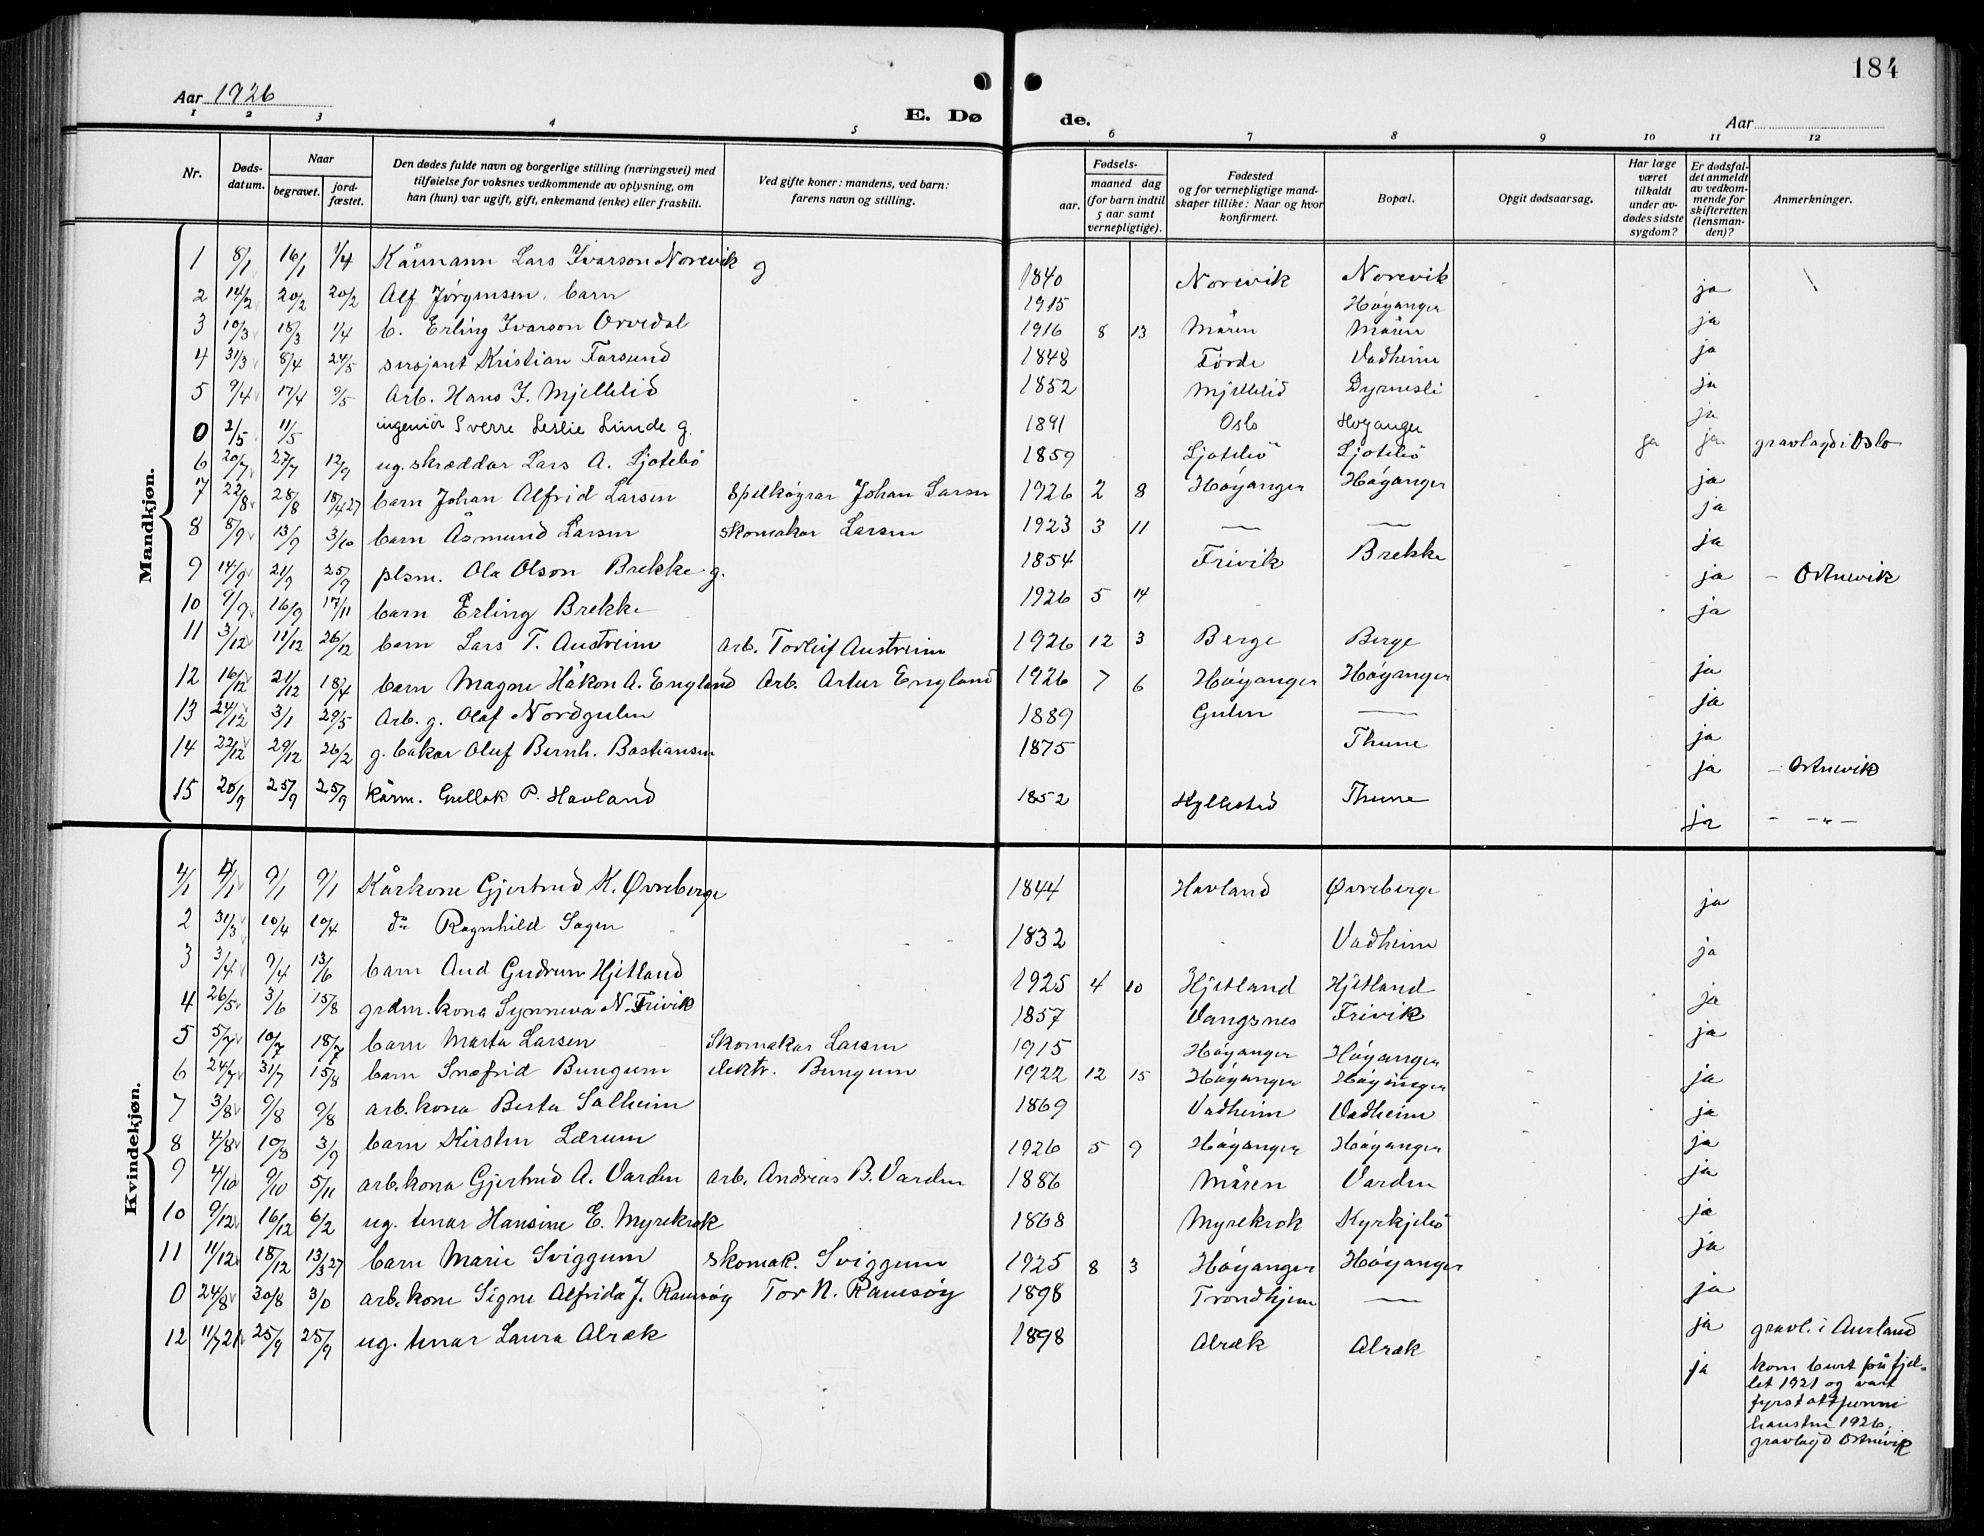 184
Aar 1926
E. Døde.
Aar
1 2 3 4 5 6 7 8 9 10 11 12
Nr.
Dødsdatum.
Naar
begravet.
jordfæstet.
Den dødes fulde navn og borgerlige stilling (næringsvei) med
tilføielse for voksnes vedkommende av oplysning, om
han (hun) var ugift, gift, enkemand (enke) eller fraskilt.
Ved gifte koner: mandens, ved barn:
farens navn og stilling.
Fødsels-
aar.
maaned dag
(for barn indtil
5 aar samt
vernepligtige).
Fødested
og for vernepligtige mand-
skaper tillike: Naar og hvor
konfirmert.
Bopæl.
Opgit dødsaarsag.
Har læge
været
tilkaldt
under av-
dødes sidste
sygdom?
Er dødsfal-
det anmeldt
av vedkom-
mende for
skifteretten
(lensman-
den)?
Anmerkninger.
Mandkjøn.
1 8/1 16/1 1/4 Kårmann Lars Ivarson Norevik g 1840 Norevik Norevik ja
2 14/2 20/2 20/2 Alf Jørgensen, barn 1915 Høyanger ja
3 10/3 18/3 1/4 b. Erling Ivarson Orvedal 1916 8 13 Måren Måren ja
4 31/3 8/4 24/5 sersjant Kristian Farsund 1848 Førde Vadheim ja
5 9/4 17/4 9/5 Arb. Hans J. Mjellelid 1852 Mjellelid Dyrnesli ja
0 2/5 11/5 ingeniör Sverre Leslie Lunde g. 1891 Oslo Høyanger ja ja gravlagd i Oslo
6 20/7 27/7 12/9 ug. skræddar Lars A. Ljotebø 1859 Ljotebø Ljotebø ja
7 22/8 28/8 18/4 27 barn Johan Alfrid Larsen Spelkøyrar Johan Larsen 1926 2 8 Høyanger Høyanger ja
8 8/9 13/9 3/10 barn Åsmund Larsen skomakar Larsen 1923 3 11 — — ja
9 14/9 21/9 25/9 plsm. Ola Olson Brekke g. 1854 Frivik Brekke ja - Ortnevik
10 9/9 16/9 17/11 barn Erling Brekke 1926 5 14 ja
11 3/12 11/12 26/12 barn Lars T. Austreim arb. Torleif Austreim 1926 12 3 Berge Berge ja
12 16/12 21/12 18/4 barn Magne Håkon A. England Arb. Artur England 1926 7 6 Høyanger Høyanger ja
13 24/12 3/1 29/5 Arb. g. Olaf Nordgulen 1889 Gulen — ja
14 22/12 29/12 26/2 g. bakar Oluf Bernh. Bastiansen 1875 Thune ja - Ortnevik
15 20/9 25/9 25/9 kårm. Gullak P. Havland 1852 Hyllestad Thune ja - - " -
Kvindekjøn.
4/1 9/1 9/1 Kårkone Gjertrud K. Øvreberge 1844 Havland Øvreberge ja
2 31/3 10/4 10/4 do Ragnhild Sagen 1832 Vadheim ja
3 3/4 9/4 13/6 barn Aud Gudrun Hjetland 1925 4 10 Hjetland Hjetland ja
4 26/5 3/6 15/8 grdm. kona Synneva N. Frivik 1857 Vangsnes Frivik ja
5 5/7 10/7 18/7 barn Marta Larsen Skomakar Larsen 1915 Høyanger Høyanger
6 24/7 31/7 15/8 barn Snefrid Bungum elektr. Bungum 1922 12 15 Høyanger Høyanger ja
7 3/8 9/8 9/8 arb. kona Berta Solheim 1869 Vadheim Vadheim ja
8 4/8 10/8 3/9 barn Kirsten Lærum 1926 5 9 Høyanger Høyanger ja
9 4/10 9/10 5/11 arb. kona Gjertrud A. Varden arb. Andreas B. Varden 1886 Måren Varden ja
10 9/12 16/12 6/2 ug. tenar Hansine E. Myrekrok 1868 Myrekrok Kyrkjebø ja
11 11/12 18/12 13/3 27 barn Marie Sviggum skomak. Sviggum 1925 8 3 Høyanger Høyanger ja
0 24/8 30/8 3/0 arb. kone Signe Alfrida J. Ramsøy Tor N. Ramsøy 1898 Trondhjem — ja gravl. i Aurland
12 11/7 21 25/9 25/9 ug. tenar Laura Alræk 1898 Alræk Alræk ja kom burt på fjel-
let 1921 og vart
fyrst attfunni
hausten 1926.
gravlagd Ortnevik